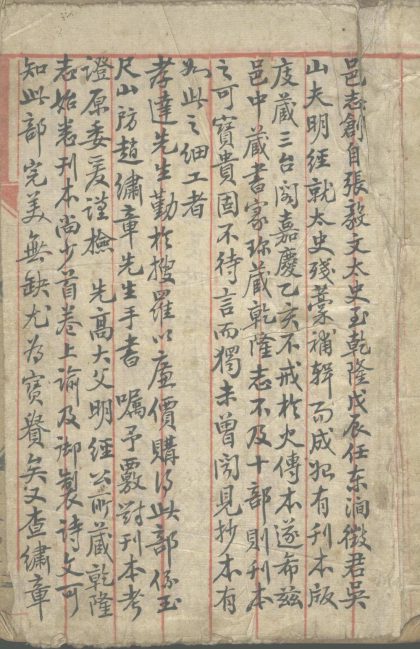 邑志創自張毅文太史至乾隆戊辰任东澗徵君吳
山夫明經就太史殘藁補輯而成始有刊本版
庋藏三台閣嘉慶乙亥不戒於火傳本遂希茲
邑中藏書家珎藏乾隆志不及十部則刊本
之可寶貴固不待言而獨未曾閱見抄本有
如此之细工者
孝達先生勤於搜羅以廉價購得此部係玉
尺山防趙繡章先生手書 嘱予覈對刊本考
證原委爰謹檢 先高大父明經公所藏乾隆
志始悉刊本尚少首卷上諭及御製詩文可
知此部完美無缺尤為寶貴矣又查繡章